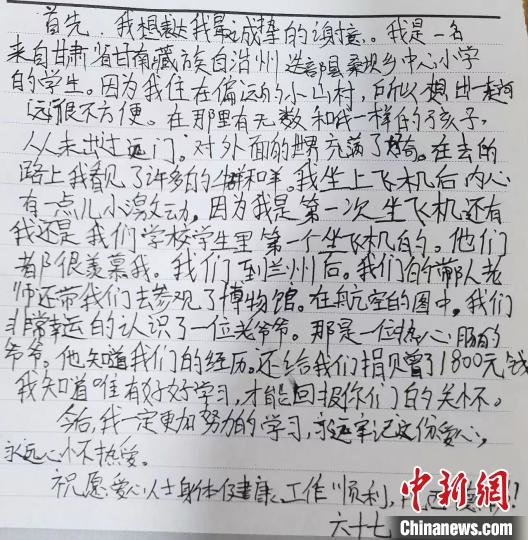 首先,我想表达我最诚挚的谢意。我是一名
来自甘肃省甘南藏族自治州迭部县桑坝乡中心小学
的学生。因为我住在偏远的小山村,所以想出一趟
远门很不方便。在那里有无数和我一样的孩子,
从未出过远门。对外面的世界充满了好奇。在去的
路上我看见了许多的牛群和羊。我坐上飞机后内心
有一点儿小激动,因为我是第一次坐飞机还有
我还是我们学校学生里第一个坐飞机的。他们
都很羡慕我。我们到兰州后。我们的带队老
师还带我们去参观了博物馆。在航空的图中,我们
非常幸运的认识了一位老爷爷。那是一位热心肠的
爷爷。他知道我们的经历。还给我们捐赠了1800元钱
我知道唯有好好学习,才能回报你们的关怀。
今后,我一定更加努力的学习,永远牢记这份爱心,
永远心怀热爱。
祝愿爱心人士身体健康、工作顺利,
六十七
中新网
Chinanews.com